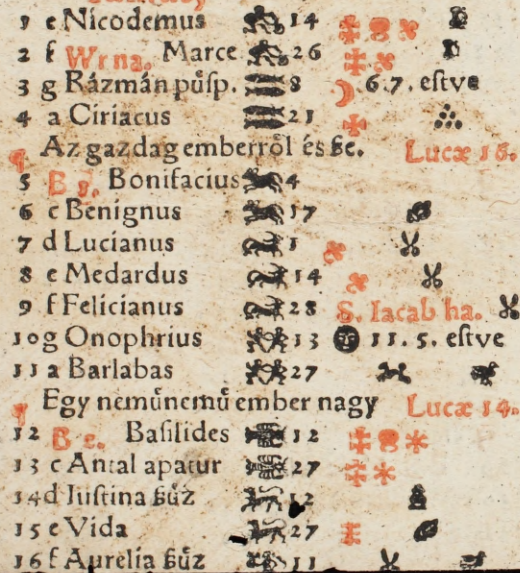 1 e Nicodemus 14
2 f Wrna. Marce 26
3 g Rázmán püsp. 8 6.7. estve
4 a Ciriacus 21
Az gazdag emberröl és ße. Lucæ 16.
5 B Bonifacius 4
6 c Benignus 17
7 d Lucianus 1
8 e Medardus 14
9 f Felicianus 28 S. Iacab ha.
10 g Onophrius 13 11.5. estve
11 a Barlabas 27
Egy némünemü ember nagy Lucæ 14.
12 B Basilides 12
13 c Antal apatur 27
14 d Iustina ßüz 12
15 e Vida 27
16 f Aurelia ßüz 11